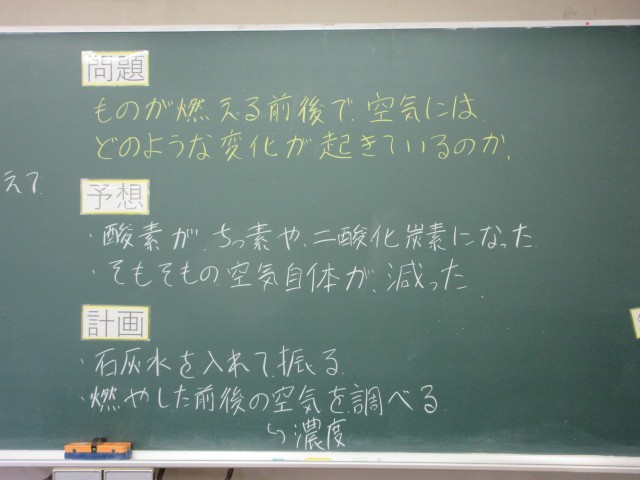 問題
ものが燃える前後で、空気には、
どのような変化が起きているのか。
えて、
予想
・酸素が、ちっ素や、二酸化炭素になった。
・そもそもの、空気自体が、減った。
計画
・石灰水を入れて、振る。
・燃やした前後の空気を、調べる。
↳濃度